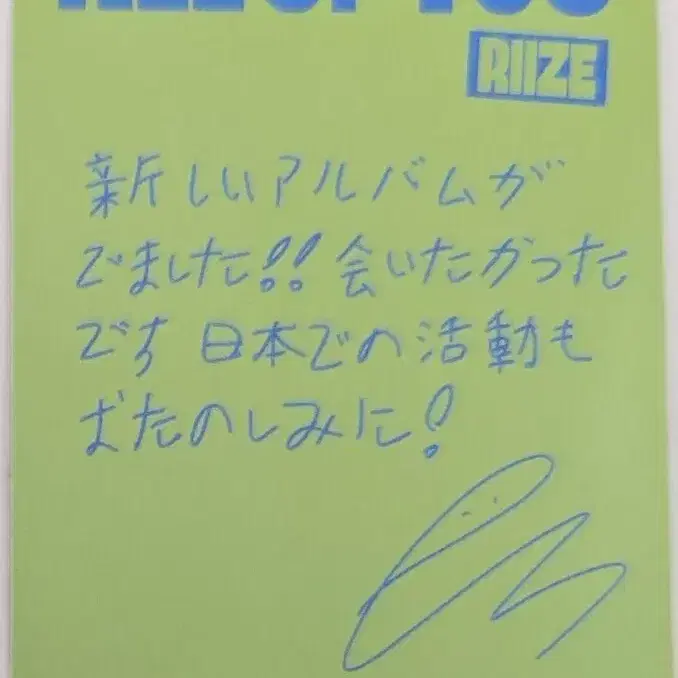 ALL OF YOU
RIIZE
新しいアルバムが
でました!! 会いたかった
です 日本での活動も
おたのしみに!